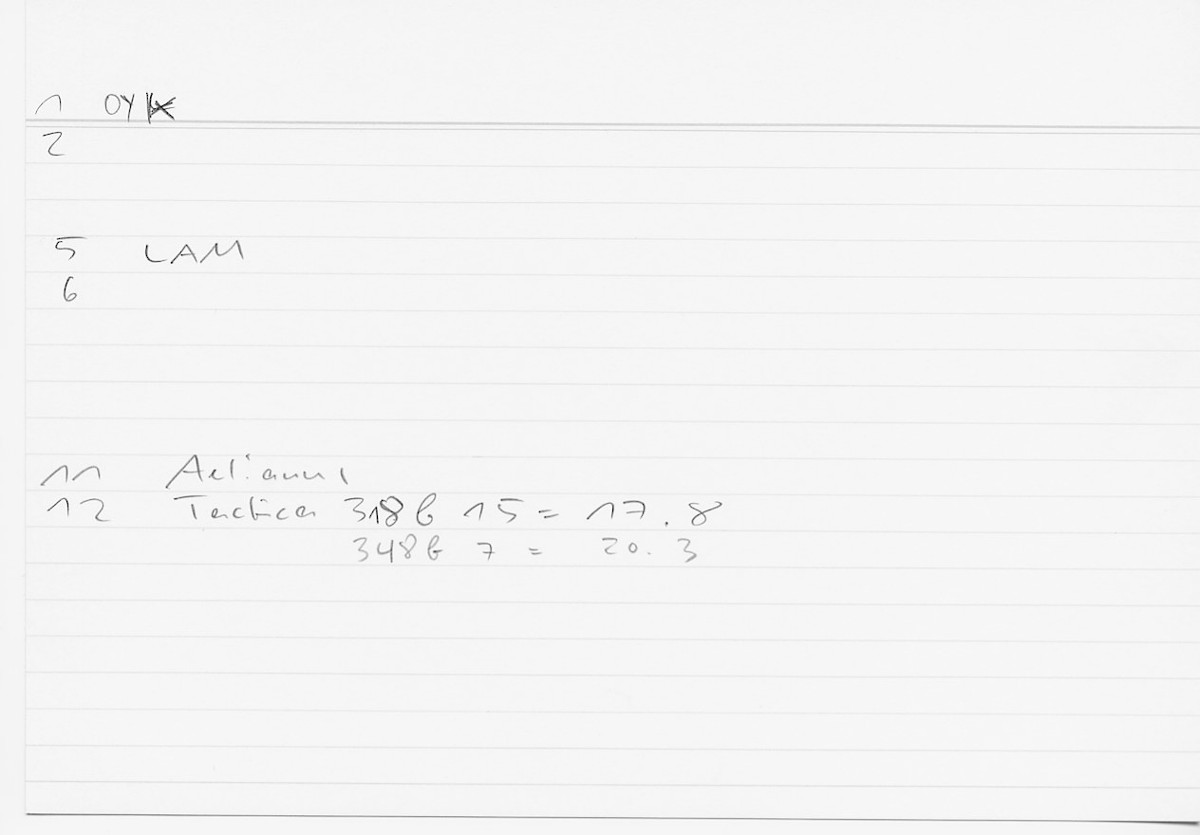 1 OYK
2
5 LAM
6
11 Aelianus
12 Tactica 318b 15 = 17.8
348b 7 = 20.3